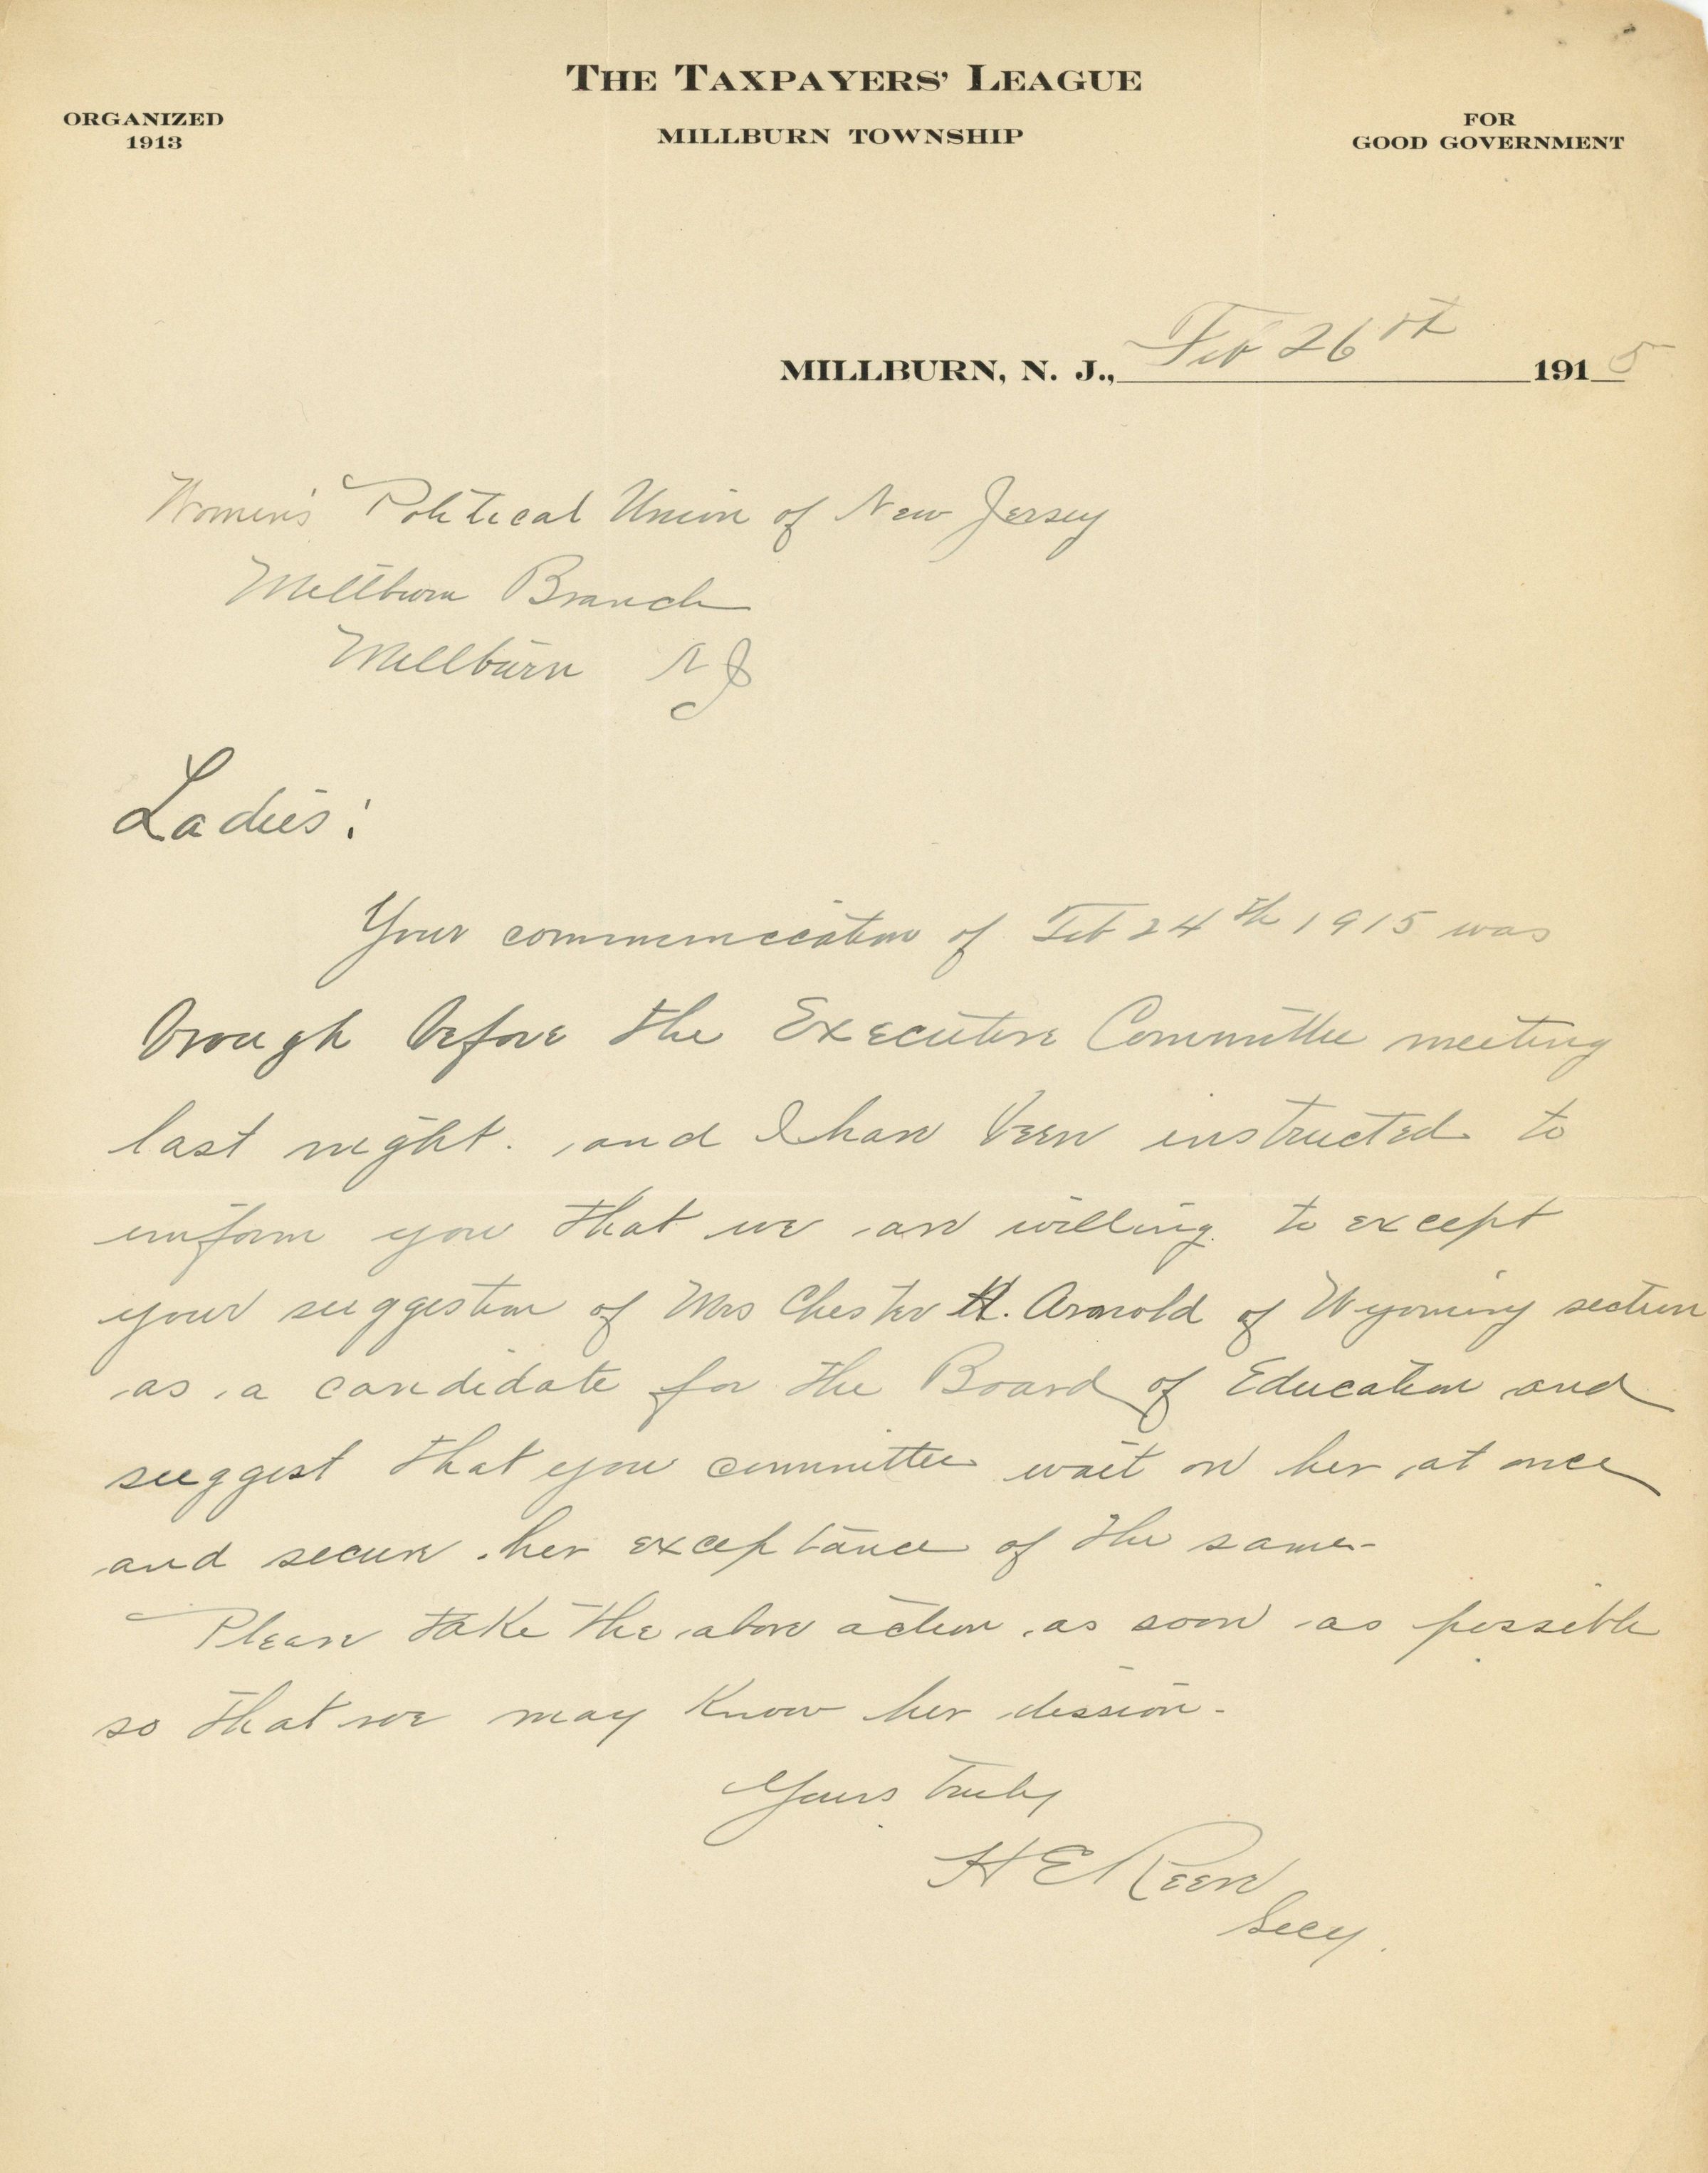 THE TAXPAYERS' LEAGUE
ORGANIZED
1913
MILLBURN TOWNSHIP
FOR
GOOD GOVERNMENT
MILLBURN, N. J., Feb 26th 1915
Women's Political Union of New Jersey
Millburn Branch
Millburn N J
Ladies:
Your communication of Feb 24th 1915 was
brough before the Executive Committee meeting
last night. and I have been instructed to
inform you that we are willing to except
your suggestion of Mrs Chester H. Arnold of Wyoming section
as a candidate for the Board of Education and
suggest that you committee wait on her at once
and secure her exceptance of the same-
Please take the above action as soon as possible
so that we may know her dession-
Yours truly
H E
Secy.